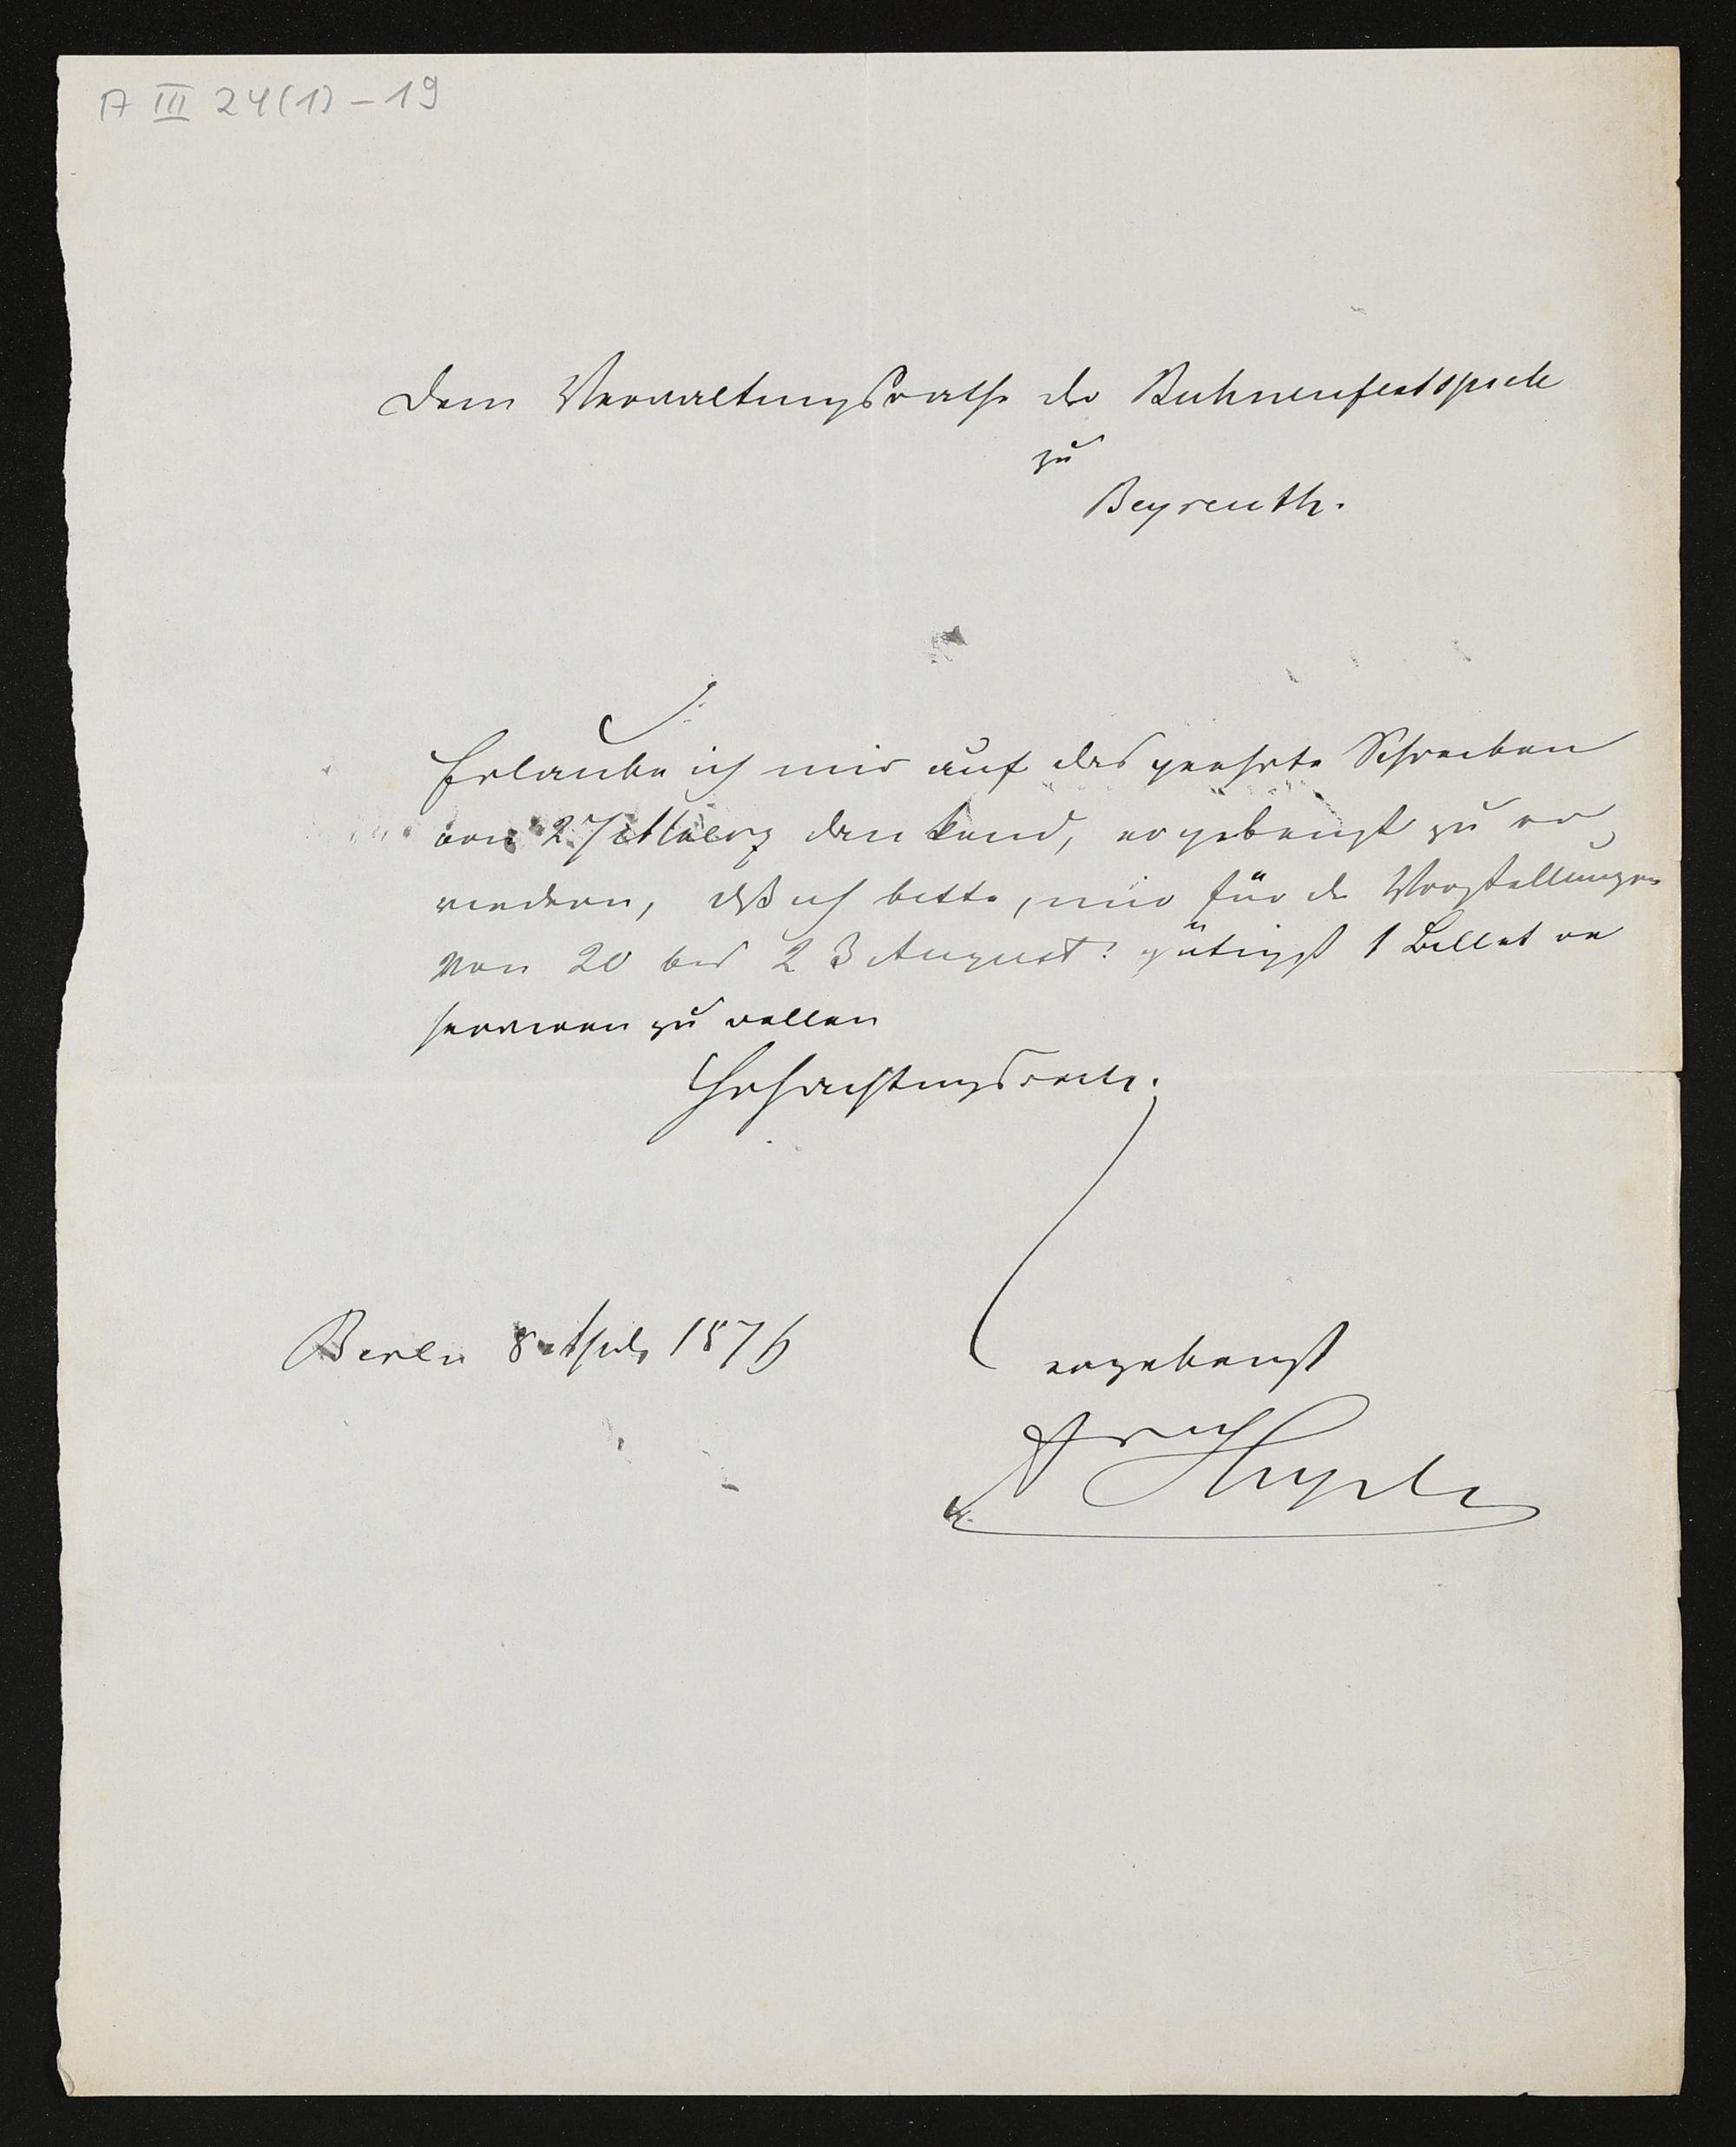 A III 24(1)-19
Dem Verwaltungsrathe der Buhnenfestspiele
zu
Beyreuth.
Erlaube ich mir auf das geehrte Schreiben
von 27 Maerz dankend, ergebenst zu er
wiedern, daß ich bitte, mir für die Vorstellungen
von 20 bis 23 August gütigst 1 Billet re
serviren zu wollen
Hochachtungsvoll.
Berlin 8 April 1876
ergebenst